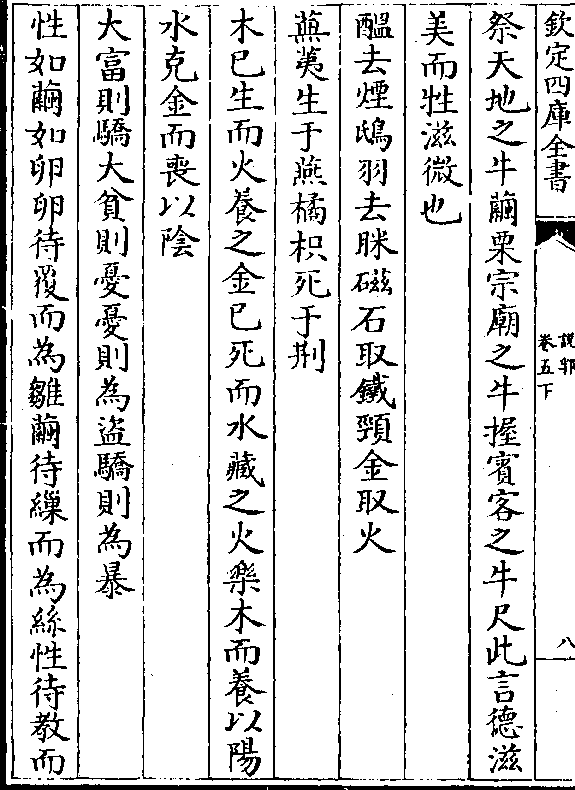 欽定四庫全書
說郛
卷五下
八
祭天地之牛繭栗宗廟之牛握賓客之牛尺此言德滋
美而牲滋微也
醖去煙鴟羽去眯磁石取鐵頸金取火
蕪荑生于燕橘枳死于荆
木已生而火養之金已死而水藏之火樂木而養以陽
水克金而喪以陰
大富則驕大貧則憂憂則為盜驕則為暴
性如繭如卵卵待覆而為雛繭待繅而為絲性待教而